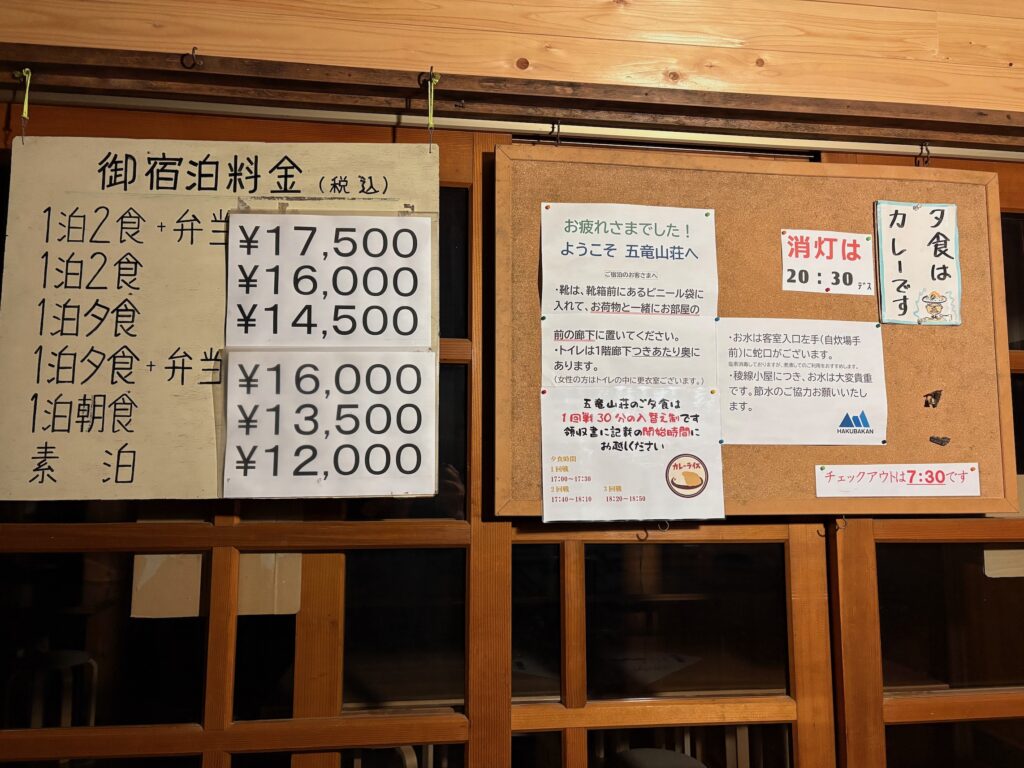 御宿泊料金(税込)
1泊2食+弁当 ¥17,500
1泊2食 ¥16,000
1泊夕食 ¥14,500
1泊夕食+弁当 ¥16,000
1泊朝食 ¥13,500
素 泊 ¥12,000
お疲れさまでした!
ようこそ 五竜山荘へ
ご宿泊のお客さまへ
・靴は、靴箱前にあるビニール袋に
入れて、お荷物と一緒にお部屋の
前の廊下に置いてください。
・トイレは1階廊下つきあたり奥に
あります。
(女性の方はトイレの中に更衣室ございます。)
五竜山荘のご夕食は
1回戦30分の入替え制です
領収書に記載の開始時間に
お越しください
夕食時間
1回戦
17:00~17:30
2回戦 3回戦
17:40~18:10 18:20~18:50
カレーライス
消灯は
20:30デス
夕食は
カレーです
・お水は客室入口左手(自炊場手
前)に蛇口がございます。
・稜線小屋につき、お水は大変貴重
です。節水のご協力お願いいたし
ます。
HAKUBAKAN
チェックアウトは7:30です